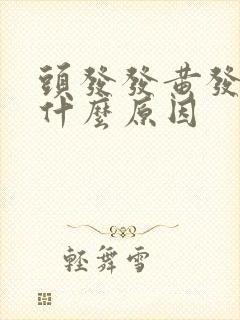 頭發發黃發
什麼原因
輕舞雪